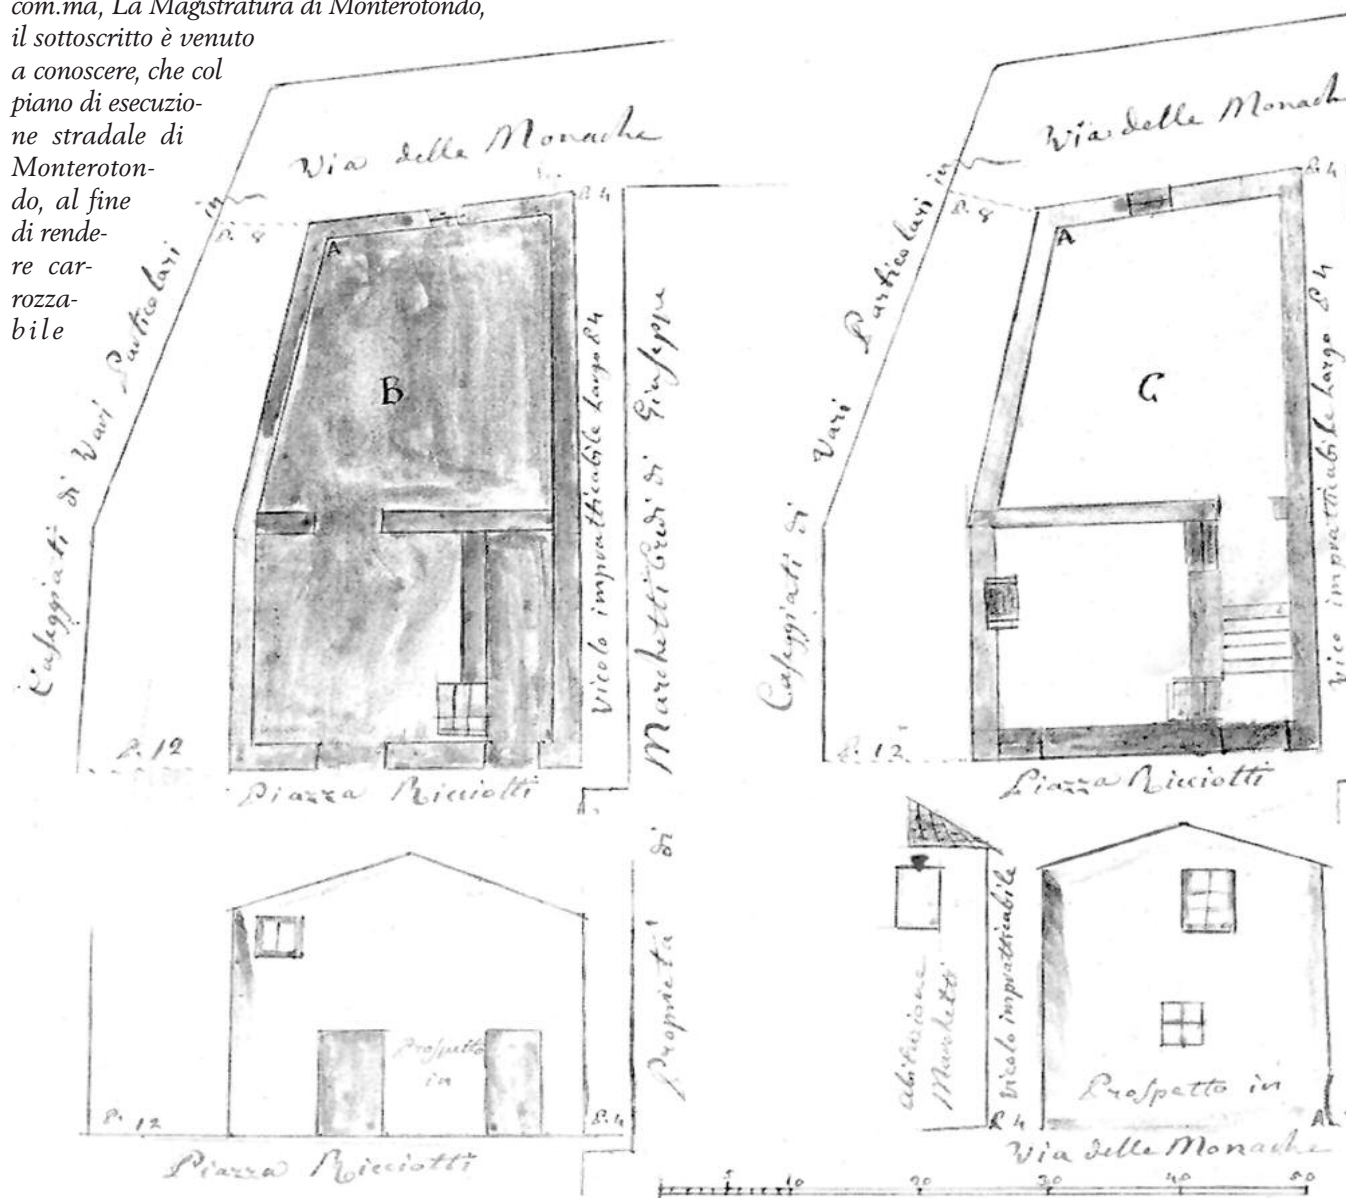 com.ma, La Magistratura di Monterotondo,
il sottoscritto è venuto
a conoscere, che col
piano di esecuzio-
ne stradale di
Monteroton-
do, al fine
di rende-
re car-
rozza-
bile
Via delle Monache
P. 4
in
P. 8
A
Caseggiati di Vari Particolari
B
Vicolo impratticabile Largo P. 4
Marchetti Eredi di Giuseppe
P. 12
Piazza Ricciotti
Proprietà di
Prospetto
in
P. 12
P. 4
Piazza Ricciotti
Via delle Monach
P. 4
in
P. 8
A
Caseggiati di Vari Particolari
C
Vico impratticabile Largo P 4
P. 12
Piazza Ricciotti
Abitazione
Marchetti
Vicolo impratticabile
P. 4
Prospetto in
A
Via delle Monache
5
10
20
30
40
50